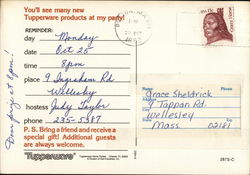 You'll see many new
Tupperware products at my party!
REMINDER:
day Monday
date Oct 25
time 8pm
place 9 Ingraham Rd
Wellesley
hostess Judy Taylor
phone 235-5987
P.S. Bring a friend and receive a
special gift! Additional guests
are always welcome.
Tupperware
Door prize at 8pm!
Grace Sheldrick
9 Tappan Rd.
Wellesley
Mass. 02181
2875-C